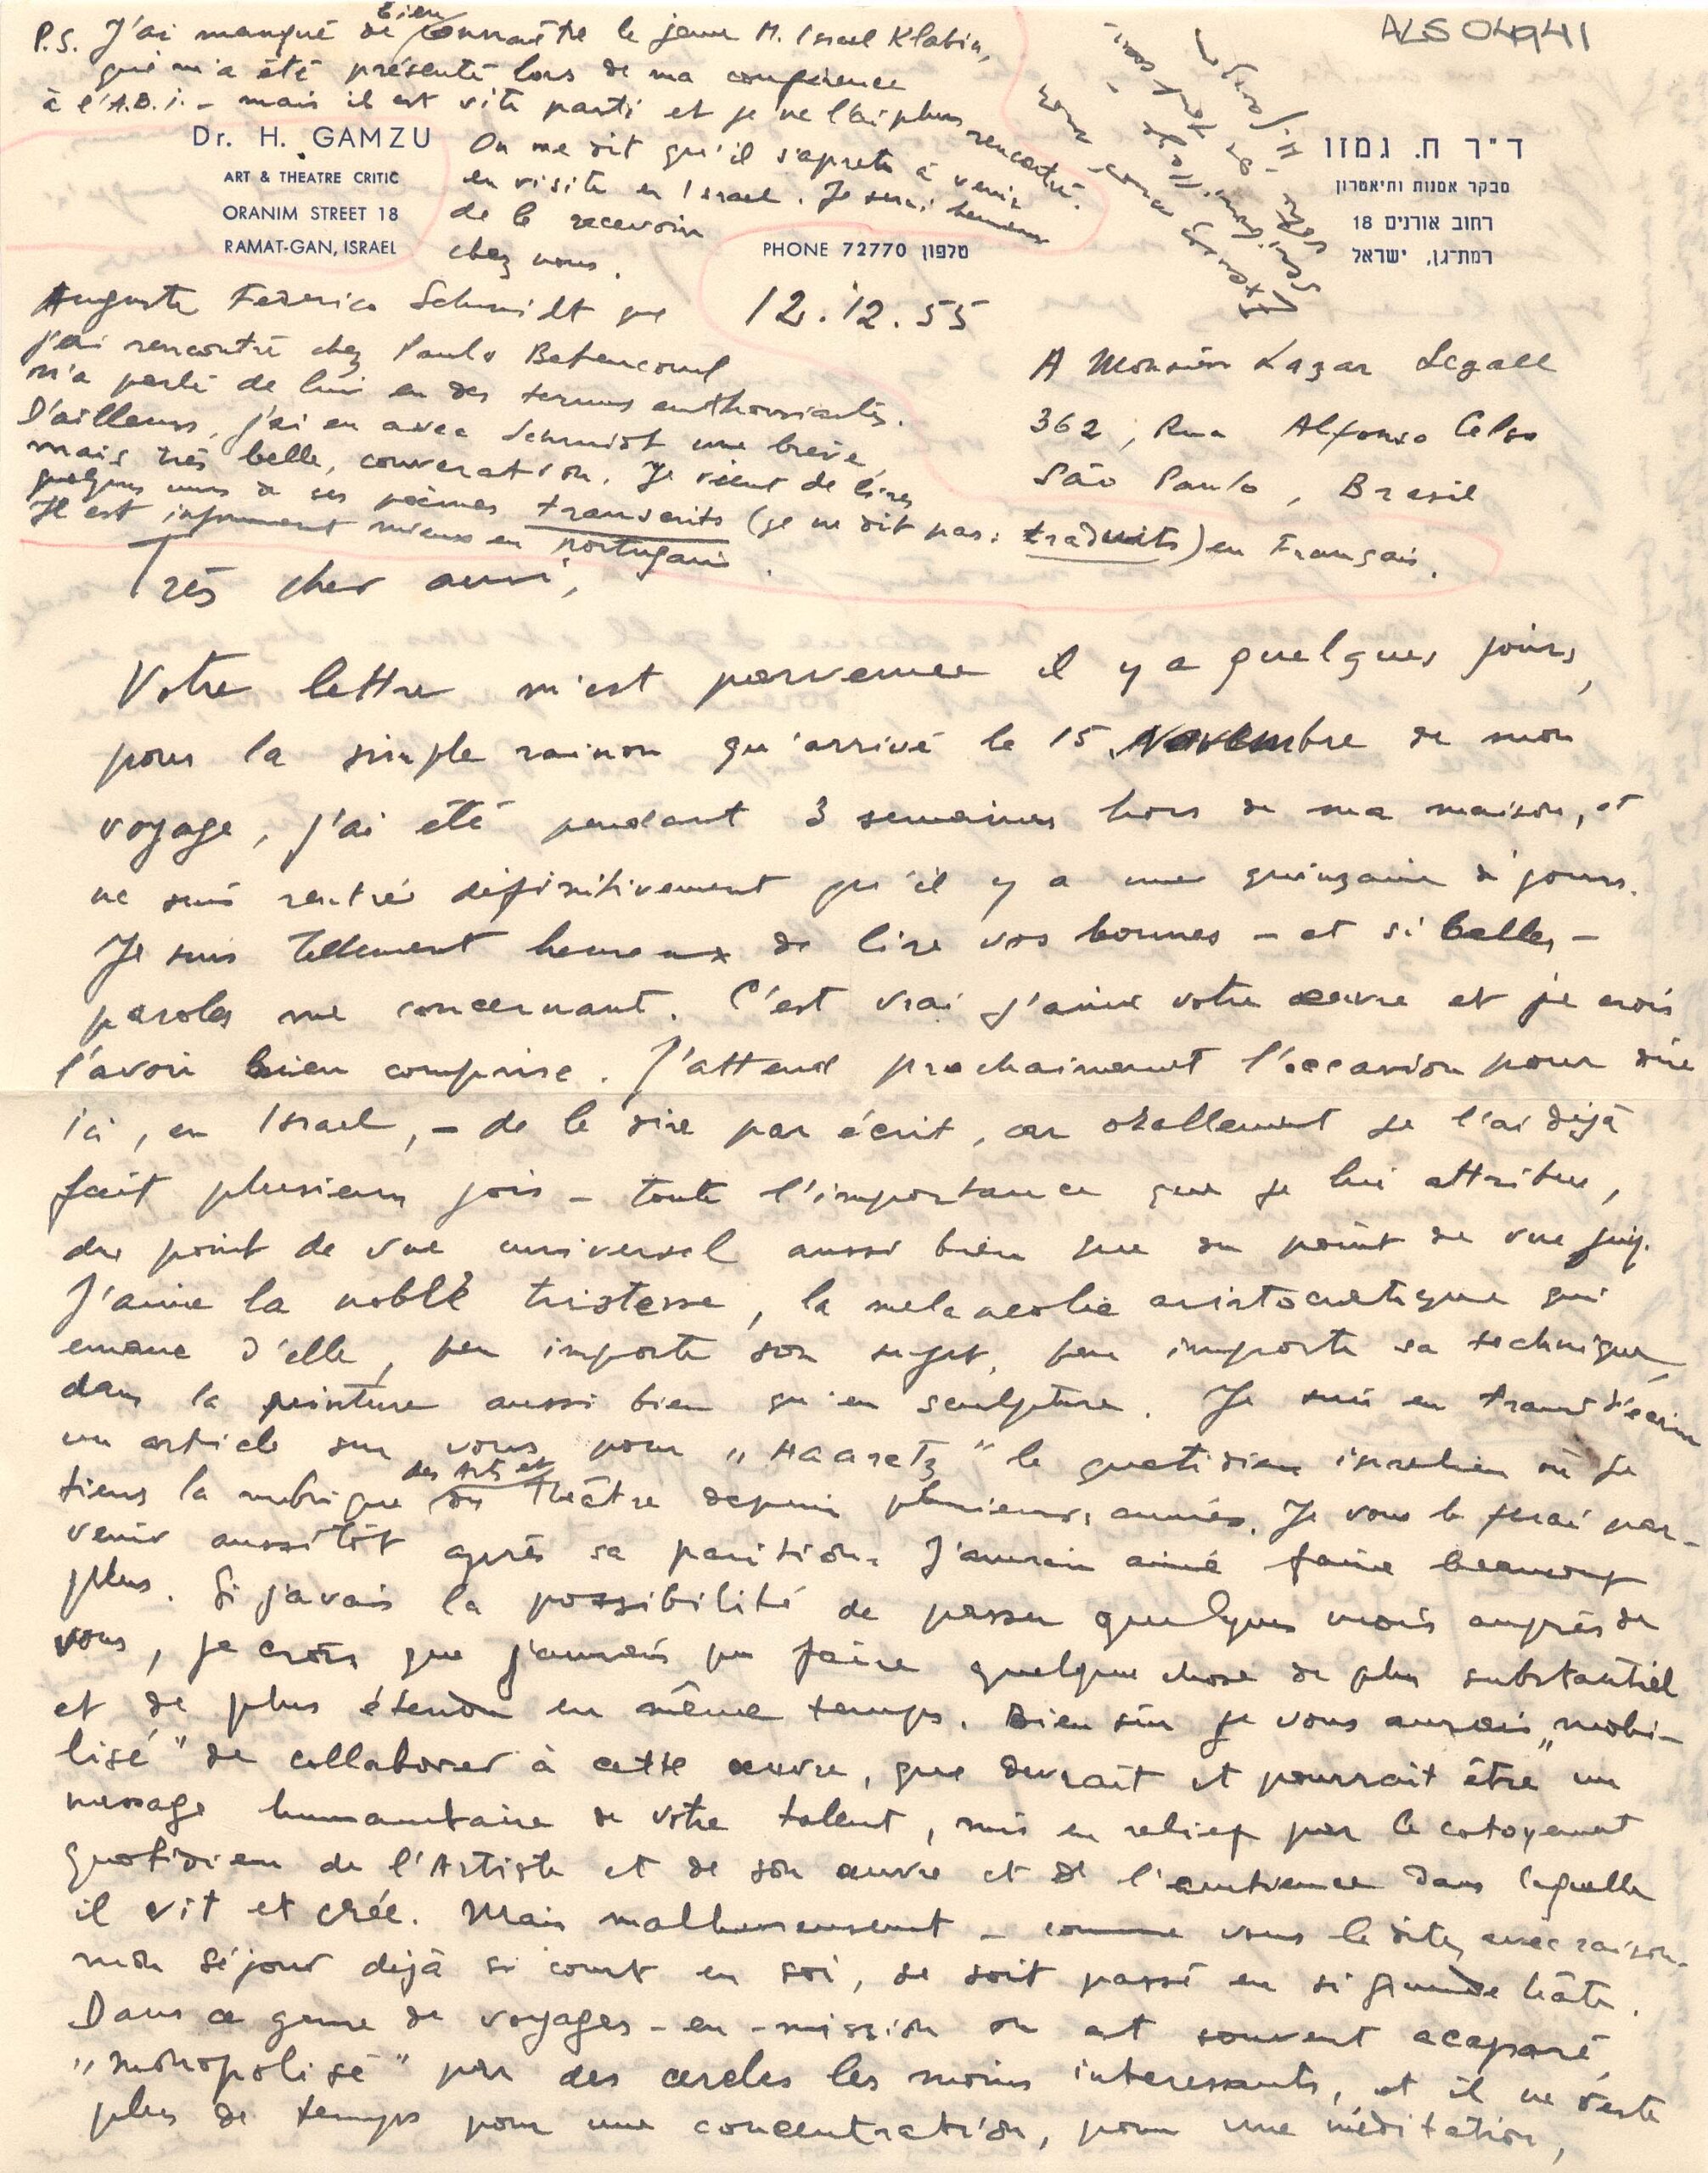 ALS 04941
P.S. J'ai manqué de bien connaître le jeune M. Israel Klabin,
qui m'a été présenté lors de ma conférence
à l'A.B.I. - mais il est vite parti et je ne l'ai plus rencontré.
On me dit qu'il s'aprete à venir
en visite en Israel. Je serai heureux
de le recevoir
chez nous.
Dr. H. GAMZU
ART & THEATRE CRITIC
ORANIM STREET 18
RAMAT-GAN, ISRAEL
PHONE 72770 טלפון
ד״ר ח. גמזו
מבקר אמנות ותיאטרון
רחוב אורנים 18
רמת־גן, ישראל
Auguste Federico Schmidt que
j'ai rencontré chez Paulo Betencourt
m'a parlé de lui en des termes enthousiastes.
D'ailleurs, j'ai eu avec Schmidt une brève,
mais très belle, conversation. Je vient de lires
quelques uns de ses poèmes transcrits (je ne dit pas: traduits) en Français.
Il est infiniment mieux en portugais.
12.12.55
A Monsieur Lazar Segall
362, Rua Alfonso Celso
São Paulo, Bresil
Très cher ami,
Votre lettre m'est parvenue il y a quelques jours,
pour la simple raison qu'arrivé le 15 Novembre de mon
voyage, j'ai été pendant 3 semaines hors de ma maison, et
ne suis rentré définitivement qu'il y a une quinzaine de jours.
Je suis tellement heureux de lire vos bonnes - et si belles -
paroles me concernant. C'est vrai j'aime votre œuvre et je crois
l'avoir bien comprise. J'attend prochainement l'occasion pour dire
ici, en Israel, - de le dire par écrit, car orallement je l'ai déjà
fait plusieurs fois - toute l'importance que je lui attribue,
du point de vue universel aussi bien que du point de vue juif.
J'aime la noble tristesse, la melancolie aristocratique qui
emane d'elle, peu importe son sujet, peu importe sa technique,
dans la peinture aussi bien qu'en sculpture. Je suis en train d'écrire
un article sur vous pour „Haaretz" le quotidien israelien où je
tiens la rubrique des Arts et du Théâtre depuis plusieurs années. Je vous le ferai par-
venir aussitôt après sa parition. J'aurais aimé faire beaucoup
plus. Si j'avais la possibilité de passer quelques mois auprès de
vous, je crois que j'aurais pu faire quelque chose de plus substantiel
et de plus étendu en même temps. Bien sûr je vous aurais „mobi-
lisé" de collaborer à cette œuvre, que devrait et pourrait être un
message humanitaire de votre talent, mis en relief par le cotoyement
quotidien de l'Artiste et de son œuvre et de l'ambiance dans laquelle
il vit et crée. Mais malheureusement - comme vous le dites avec raison -
mon séjour déjà si court en soi, se soit passé en si grande hâte.
Dans ce genre de voyages-en-mission on est souvent acaparé,
„monopolisé" par des cercles les moins interessants, et il ne reste
plus de temps pour une concentration, pour une méditation,